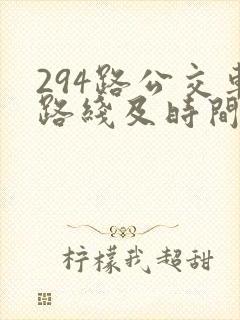 294路公交車
路綫及時間
柠檬我超甜